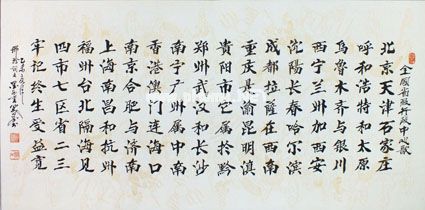 全國省级行政中心歌
北京天津石家庄
呼和浩特和太原
乌鲁木齐与银川
西宁兰州加西安
沈陽长春哈尔滨
成都拉萨在西南
重庆是渝昆明滇
贵陽市它属於黔
郑州武汉和长沙
南宁广州属中南
香港澳门连海口
南京合肥与济南
上海南昌和杭州
福州台北隔海见
四市七区省二三
牢记终生受益宽